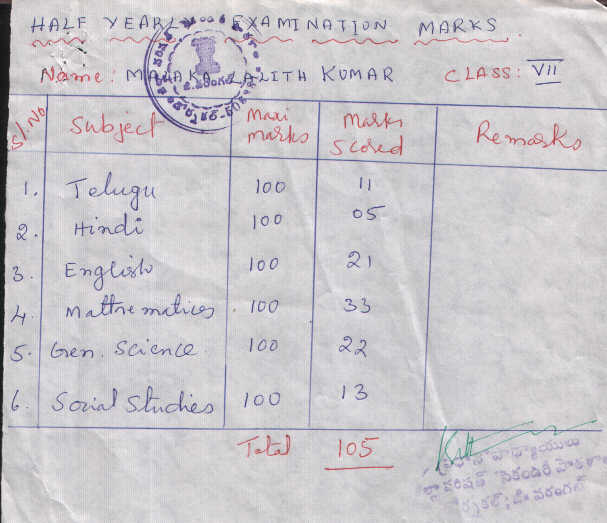 HALF YEARLY EXAMINATION MARKS.
Name: MADAKA LALITH KUMAR CLASS: VII
Sl.No Subject Maxi marks Marks Scored Remarks
1. Telugu 100 11
2. Hindi 100 05
3. English 100 21
4. Mathematics 100 33
5. Gen. Science 100 22
6. Social Studies 100 13
Total 105